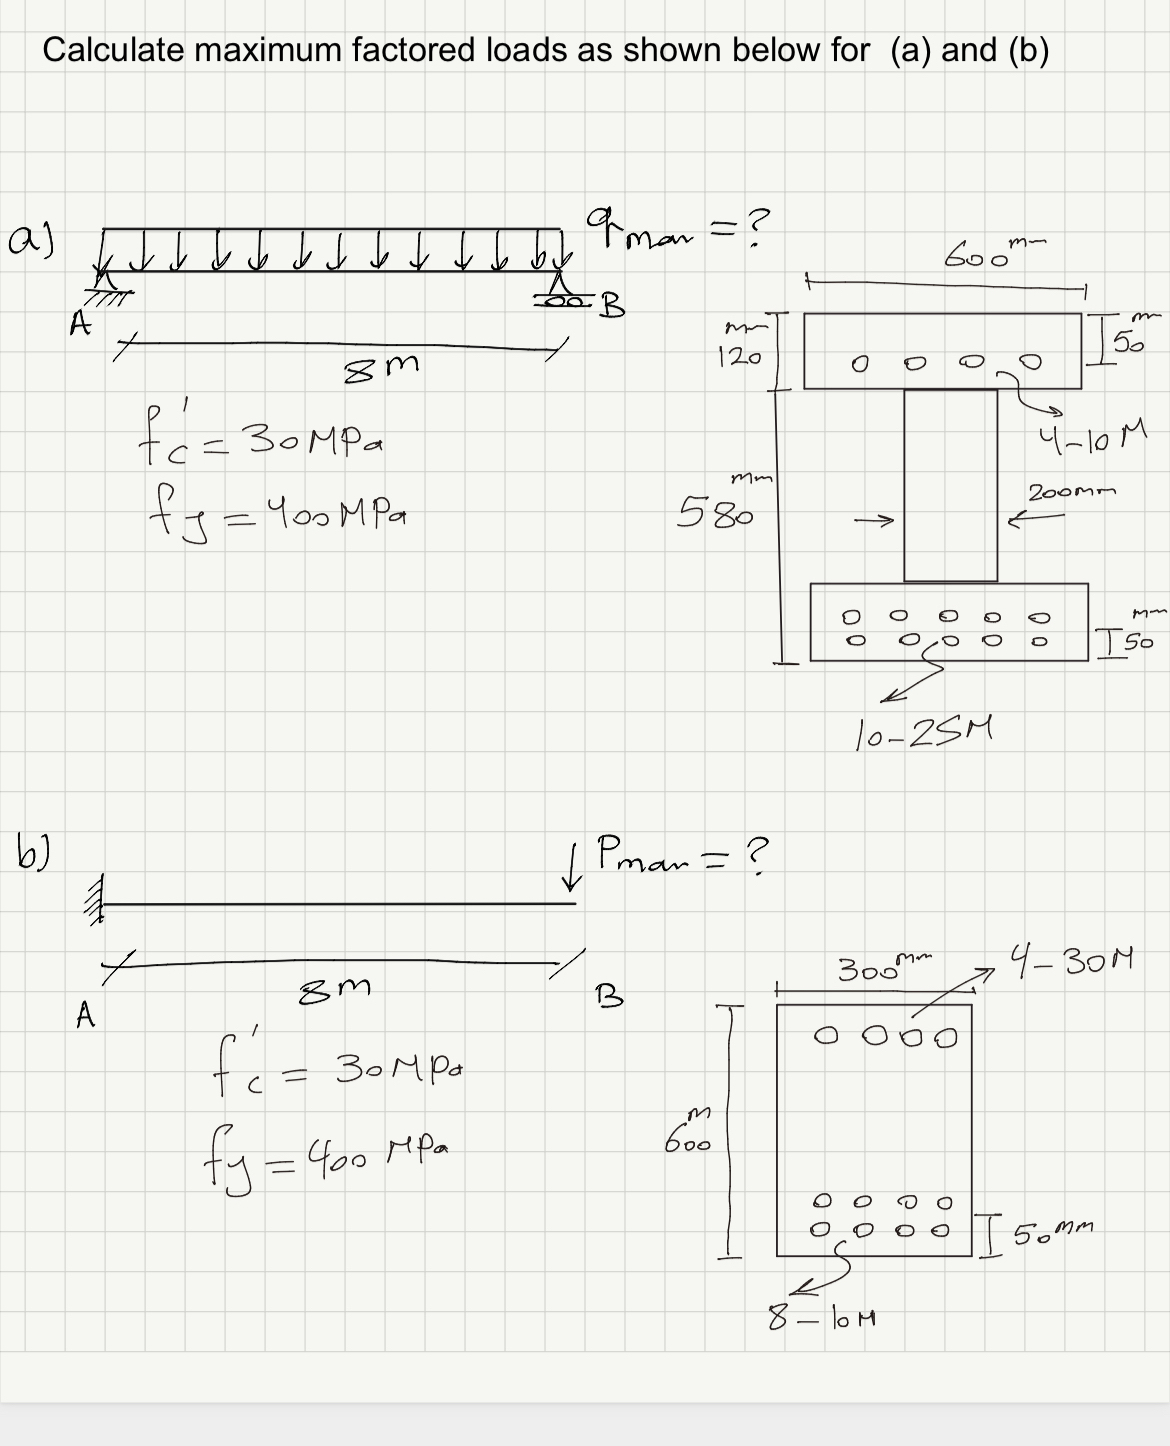 Calculate maximum factored loads as shown below for (a) and (b)
a)
qmax = ?
A
B
8m
f'c = 30MPa
fy = 400MPa
600mm
mm
120
50
m
4-10M
580
mm
200mm
50
mm
10-25M
b)
Pmax = ?
8m
A
B
f'c = 30MPa
fy = 400MPa
300mm
4-30M
600
m
50mm
8-10M